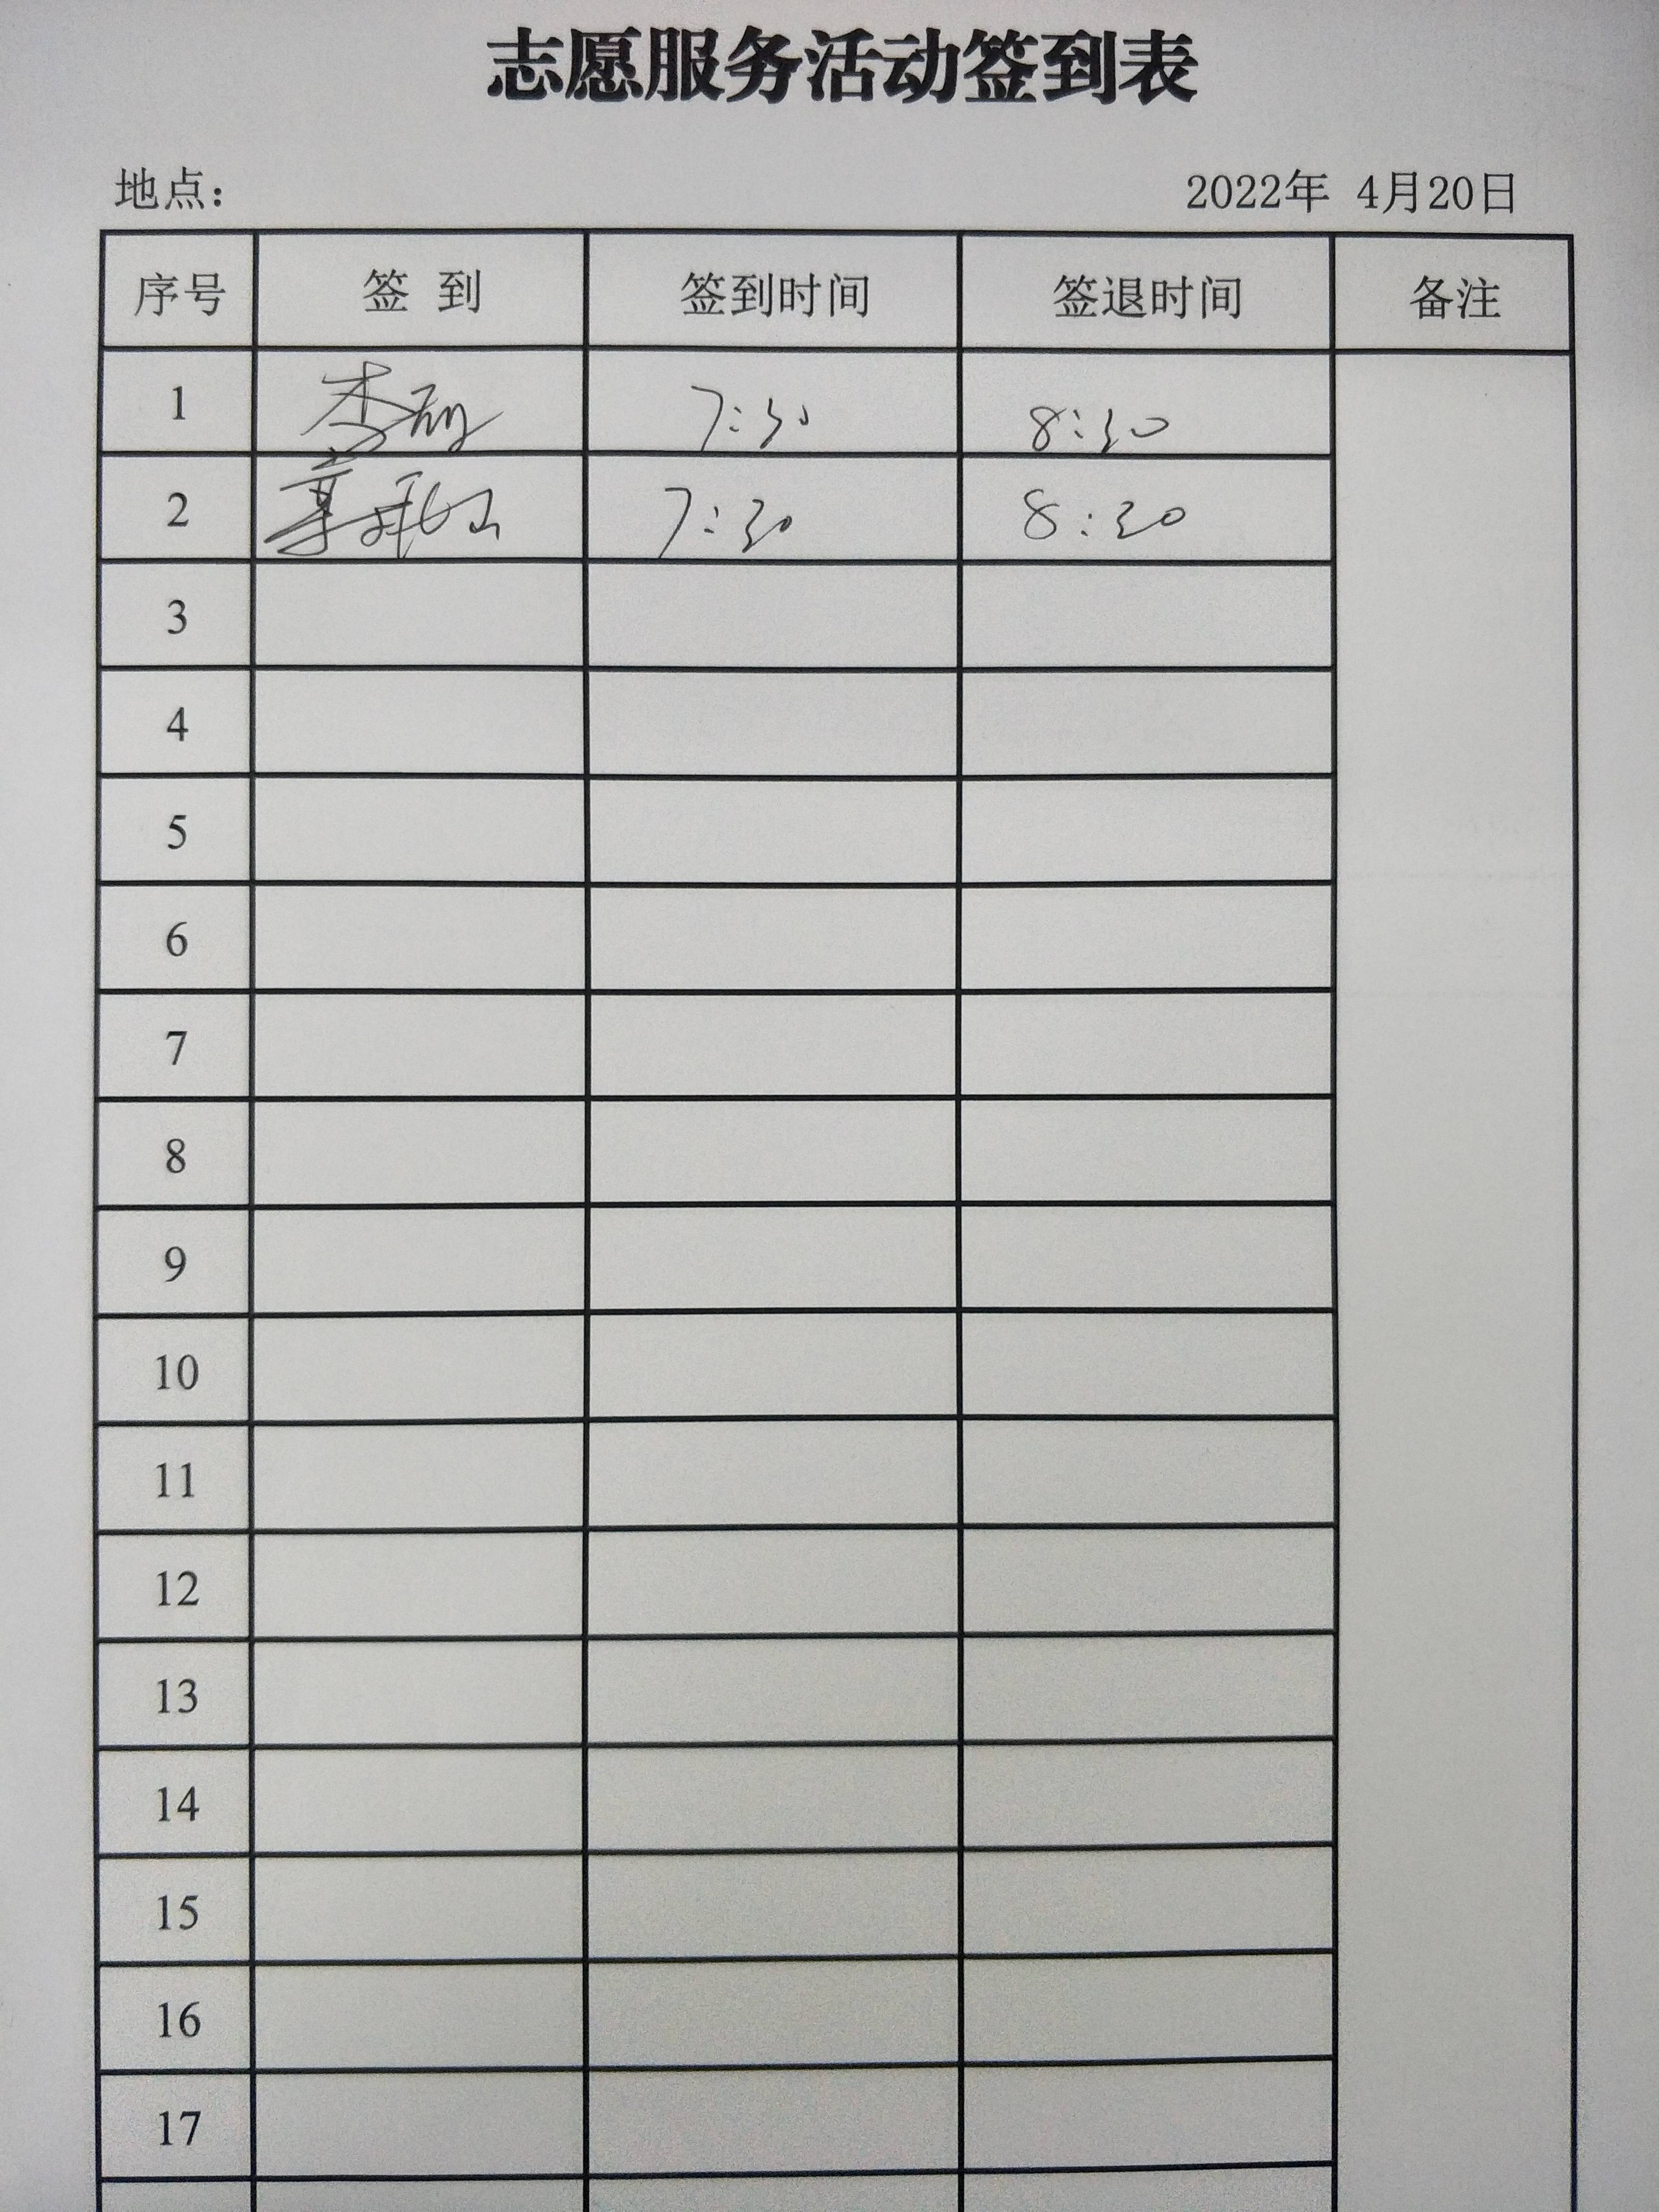 志愿服务活动签到表
地点： 2022年 4月20日
序号 签 到 签到时间 签退时间 备注
1 李 7:30 8:30
2 7:30 8:30
3
4
5
6
7
8
9
10
11
12
13
14
15
16
17